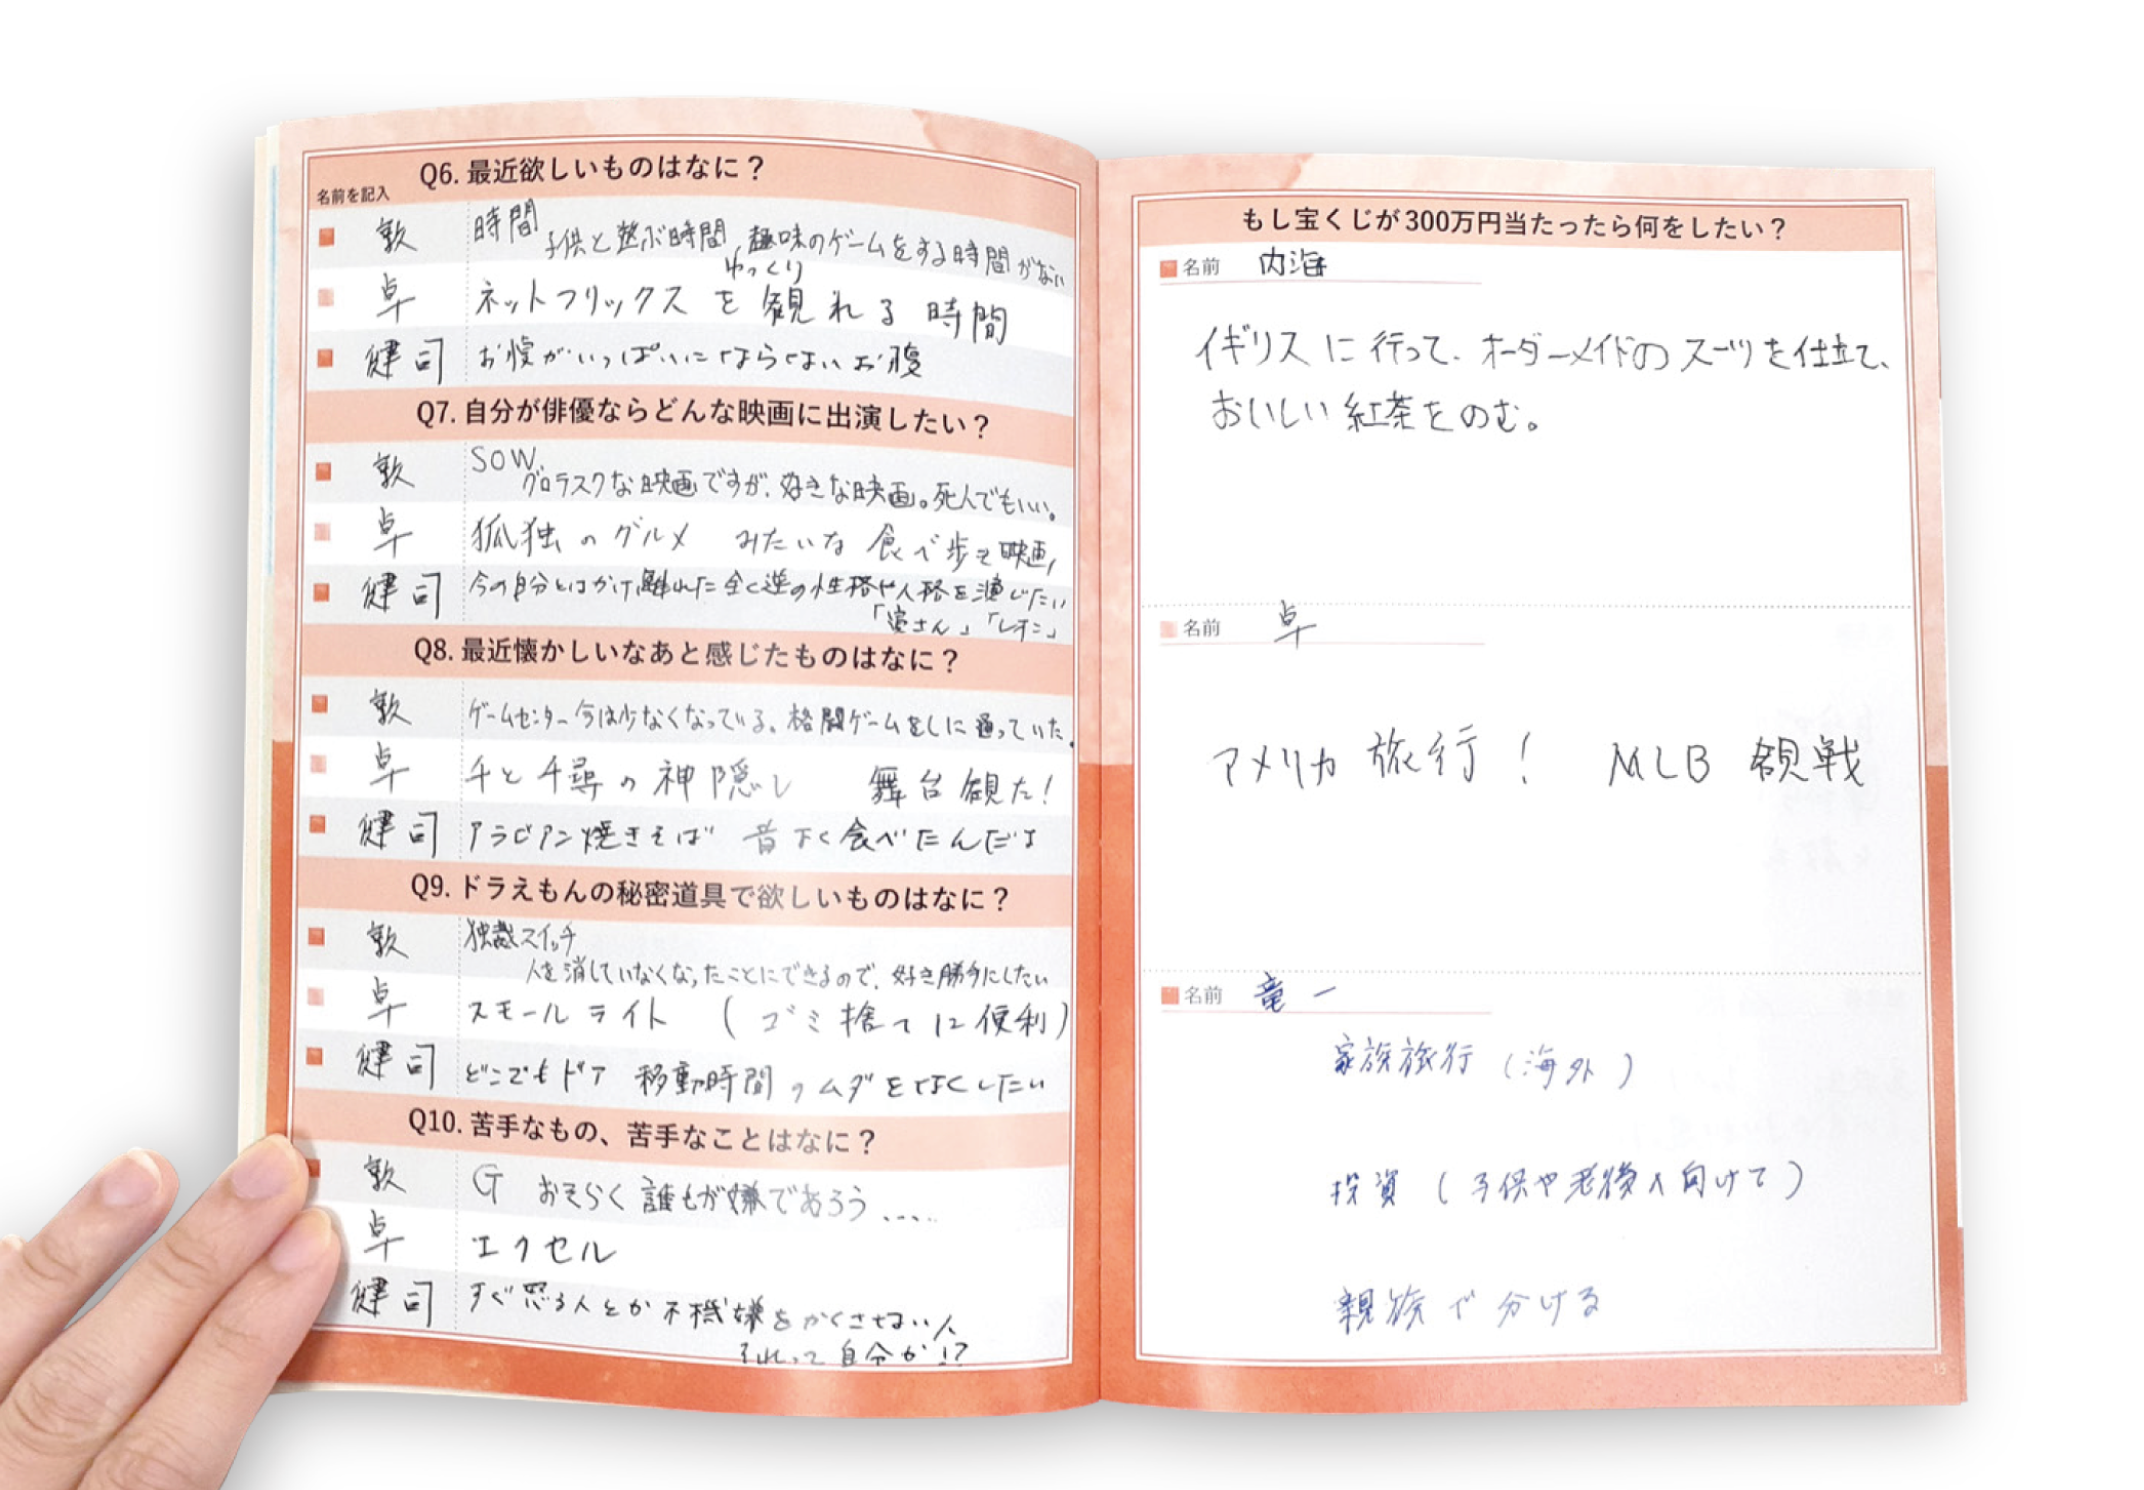 Q6. 最近欲しいものはなに？
名前を記入
敦 時間
子供と遊ぶ時間、趣味のゲームをする時間がない
卓 ネットフリックスをゆっくり観れる時間
健司 お腹がいっぱいにならないお腹
Q7. 自分が俳優ならどんな映画に出演したい？
敦 SOW
グロテスクな映画ですが、好きな映画。死人でもいい。
卓 狐独のグルメ みたいな 食べ歩き映画
健司 今の自分とはかけ離れた全く逆の性格や人格を演じたい
「寅さん」「レオン」
Q8. 最近懐かしいなあと感じたものはなに？
敦 ゲームセンター今は少なくなっている。格闘ゲームをしに通っていた。
卓 千と千尋の神隠し 舞台観た！
健司 アラビアン焼きそば 昔よく食べたんだよ
Q9. ドラえもんの秘密道具で欲しいものはなに？
敦 独裁スイッチ
人を消していなくなったことにできるので、好き勝手にしたい
卓 スモールライト （ゴミ捨てに便利）
健司 どこでもドア 移動時間のムダをなくしたい
Q10. 苦手なもの、苦手なことはなに？
敦 G おそらく誰もが嫌であろう.....
卓 エクセル
健司 すぐ怒る人とか不機嫌をかくさせない人
それって自分か!?
もし宝くじが300万円当たったら何をしたい？
名前 内海
イギリスに行って、オーダーメイドのスーツを仕立て、
おいしい紅茶をのむ。
名前 卓
アメリカ旅行！ MLB 観戦
名前 竜一
家族旅行（海外）
投資（子供や老後へ向けて）
親族で分ける
15